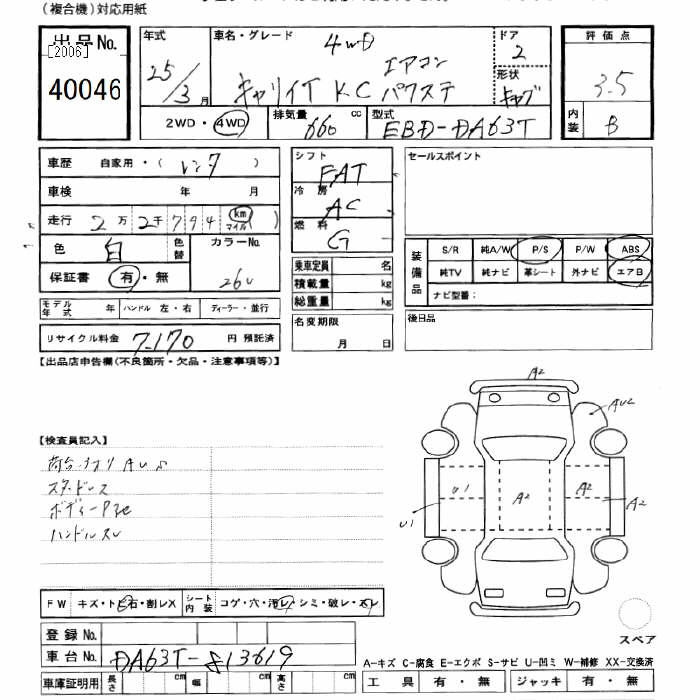 (複合機)対応用紙
出品No.
[2006]
40046
年式
25/3月
車名・グレード
4WD
エアコン
キャリイT KC パワステ
ドア
2
形状
キャブ
評価点
3.5
内装
B
2WD・4WD
排気量 660 cc
型式 EBD-DA63T
車歴 自家用・(レンタ)
車検 年 月
走行 2万2千794 km マイル
色 白 色替
カラーNo. 26U
保証書 有・無
モデル年式 年 ハンドル 左・右 ディーラー・並行
リサイクル料金 7,170 円 預託済
シフト
FAT
冷房
AC
燃料
G
乗車定員 名
積載量 kg
総重量 kg
名変期限
月 日
セールスポイント
装備品
S/R 純A/W P/S P/W ABS
純TV 純ナビ 革シート 外ナビ エアB
ナビ型番:
後日品
【出品店申告欄(不良箇所・欠品・注意事項等)】
【検査員記入】
スタッドレス
ハンドルスレ
FW キズ・トビ石・割レX シート内装 コゲ・穴・汚レ・シミ・破レ・スレ
登録No.
車台No. DA63T-813619
車庫証明用 長さ cm 幅 cm 高さ cm
A2
AU2
U1
A2
A2
A2
U1
スペア
A-キズ C-腐食 E-エクボ S-サビ U-凹ミ W-補修 XX-交換済
工具 有・無 ジャッキ 有・無